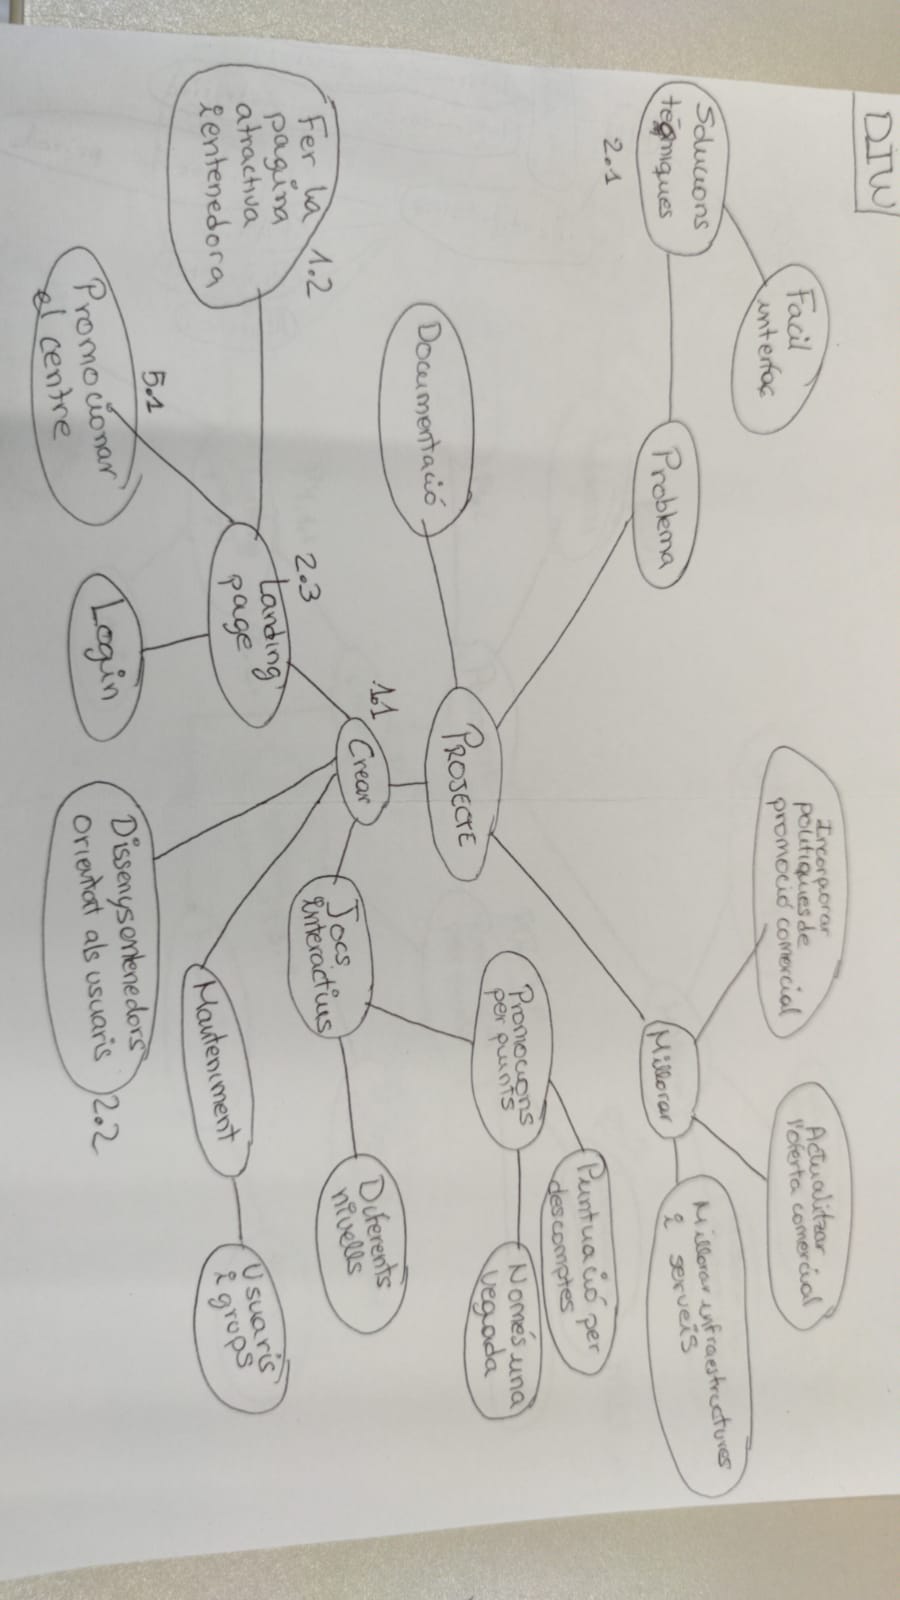 DIW
Facil
interfaç
Solucions
tècniques
2.1
Problema
Incorporar
polítiques de
promoció comercial
Actualitzar
l'oferta comercial
Millorar infraestructures
i serveis
Millorar
Puntuació per
descomptes
Promocions
per punts
Només una
vegada
PROJECTE
Documentació
1.1
Crear
Jocs
interactius
Diferents
nivells
Fer la
pagina
atractiva
i entenedora
1.2
2.3
Landing
page
Manteniment
Usuaris
i grups
5.1
Promocionar
el centre
Login
Dissenys entenedors
orientat als usuaris
2.2